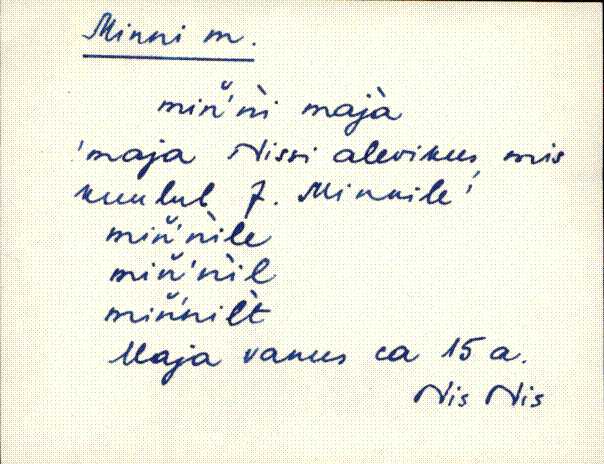 Minni m.
miň'ǹi majà
'maja Nissi alevikus mis
kuulub J. Minnile'
miň'ǹile
miň'ǹil
miň'nilt̀
Maja vanus ca 15 a.
Nis Nis